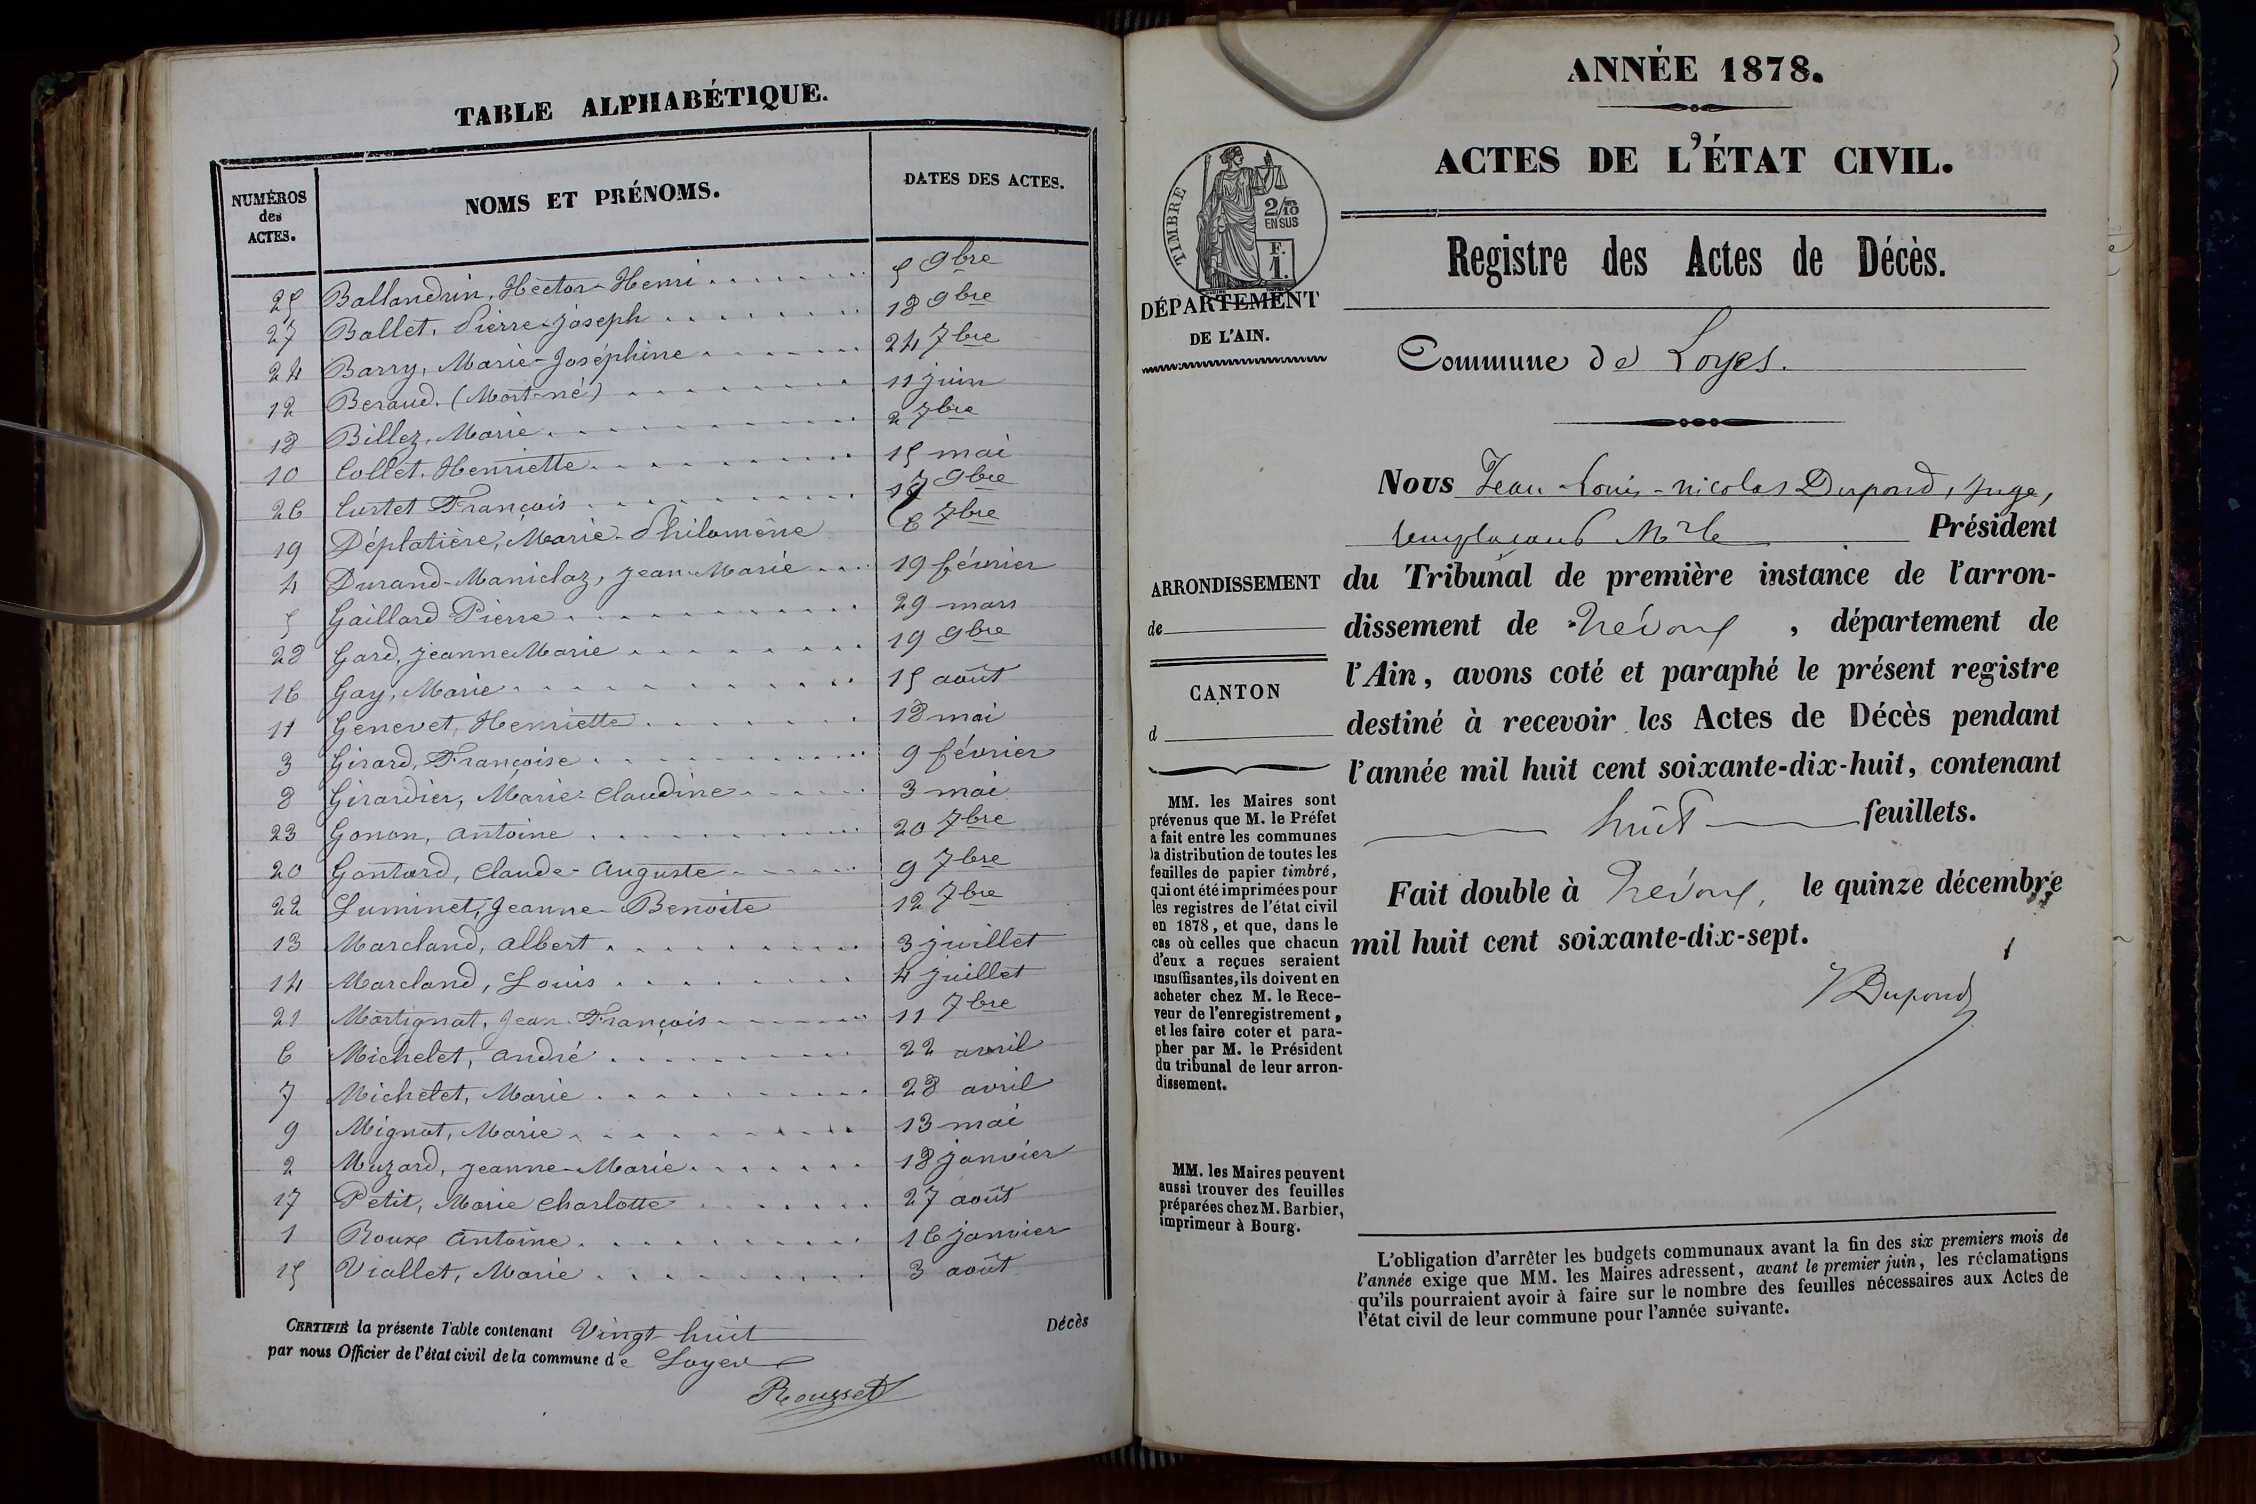 TABLE ALPHABÉTIQUE.
NUMÉROS des ACTES. NOMS ET PRÉNOMS. DATES DES ACTES.
25 Ballandrin, Hector-Henri 5 9bre
27 Ballet, Pierre-Joseph 18 9bre
24 Barry, Marie-Joséphine 24 7bre
12 Beraud. (Mort-né) 11 juin
18 Billez, Marie 2 7bre
10 Collet, Henriette 15 mai
26 Curtet François 17 9bre
19 Déplatière, Marie-Philomène 6 7bre
4 Durand-Maniclaz, Jean-Marie 19 février
5 Gaillard Pierre 29 mars
28 Gard, Jeanne Marie 19 9bre
16 Gay, Marie 15 août
11 Genevet, Henriette 18 mai
3 Girard, Françoise 9 février
8 Girardier, Marie-Claudine 3 mai
23 Gonon, Antoine 20 7bre
20 Gontard, Claude-Auguste 9 7bre
22 Luminet, Jeanne-Benoite 12 7bre
13 Marcland, Albert 3 juillet
14 Marcland, Louis 4 juillet
21 Martignat, Jean-François 11 7bre
6 Michelet, André 22 avril
7 Michelet, Marie 28 avril
9 Mignat, Marie 13 mai
2 Muzard, Jeanne-Marie 18 janvier
17 Petit, Marie Charlotte 27 août
1 Roux Antoine 16 janvier
15 Viallet, Marie 3 août
CERTIFIÉ la présente Table contenant Vingt-huit Décès
par nous Officier de l'état civil de la commune de Loyes
Rousset
ANNÉE 1878.
ACTES DE L'ÉTAT CIVIL.
Registre des Actes de Décès.
TIMBRE
2/10 EN SUS
F. 1.
DÉPARTEMENT
DE L'AIN.
Commune de Loyes.
Nous Jean-Louis-Nicolas Dupond, juge,
remplaçant Mr le Président
du Tribunal de première instance de l'arron-
dissement de Trévoux, département de
l'Ain, avons coté et paraphé le présent registre
destiné à recevoir les Actes de Décès pendant
l'année mil huit cent soixante-dix-huit, contenant
huit feuillets.
Fait double à Trévoux, le quinze décembre
mil huit cent soixante-dix-sept.
Dupond
ARRONDISSEMENT
de
CANTON
d
MM. les Maires sont
prévenus que M. le Préfet
a fait entre les communes
la distribution de toutes les
feuilles de papier timbré,
qui ont été imprimées pour
les registres de l'état civil
en 1878, et que, dans le
cas où celles que chacun
d'eux a reçues seraient
insuffisantes, ils doivent en
acheter chez M. le Rece-
veur de l'enregistrement,
et les faire coter et para-
pher par M. le Président
du tribunal de leur arron-
dissement.
MM. les Maires peuvent
aussi trouver des feuilles
préparées chez M. Barbier,
imprimeur à Bourg.
L'obligation d'arrêter les budgets communaux avant la fin des six premiers mois de
l'année exige que MM. les Maires adressent, avant le premier juin, les réclamations
qu'ils pourraient avoir à faire sur le nombre des feuilles nécessaires aux Actes de
l'état civil de leur commune pour l'année suivante.